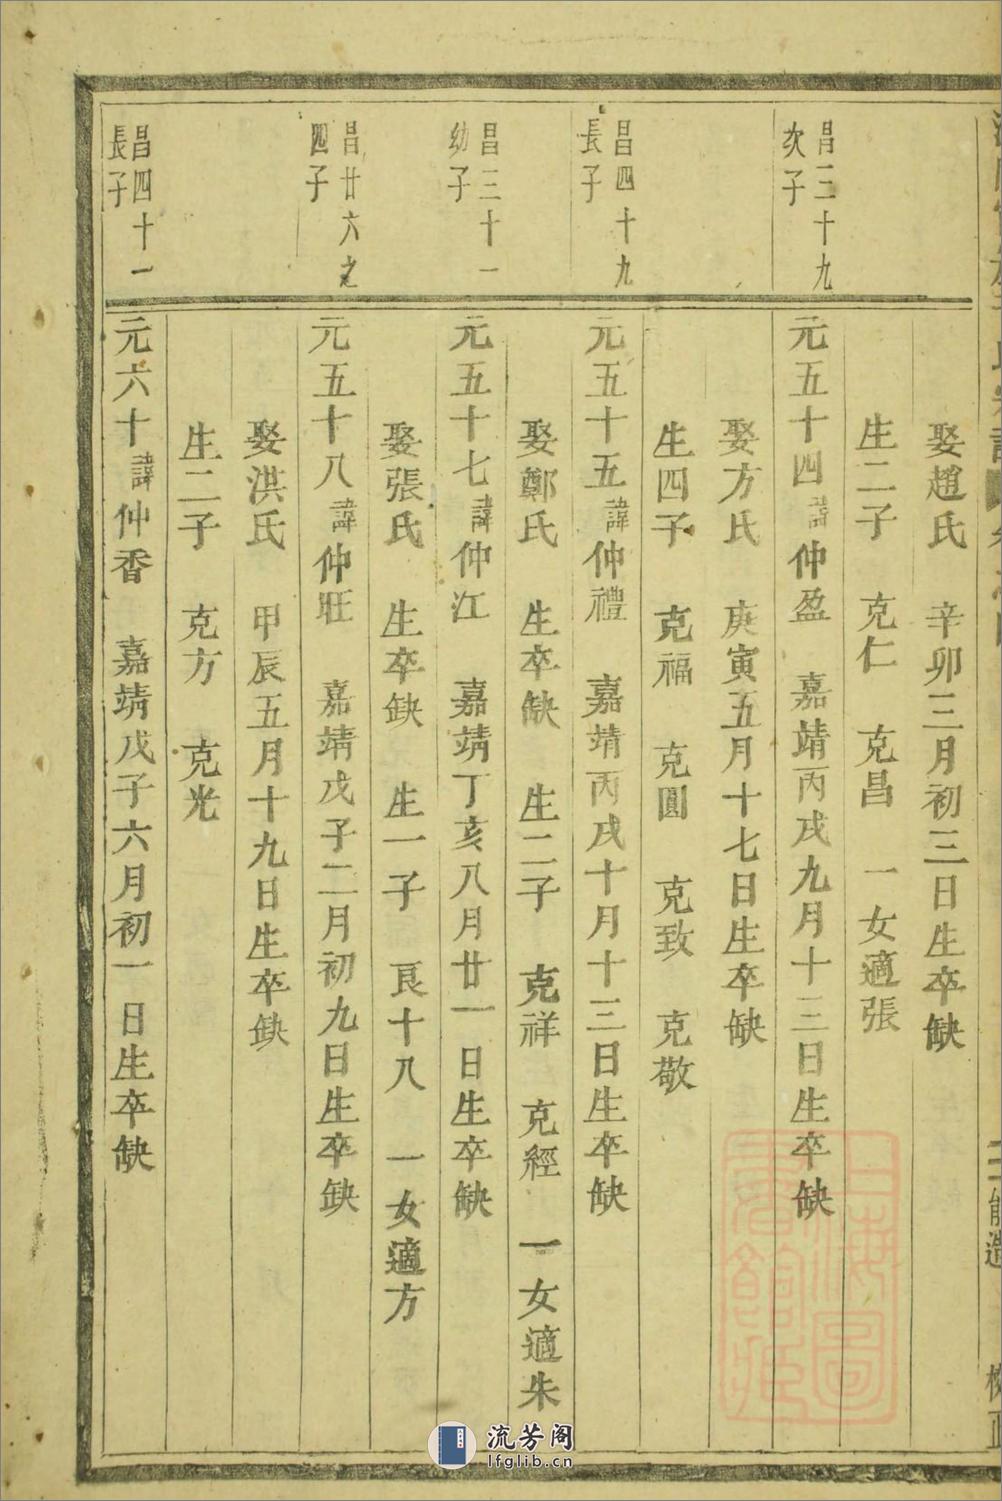 娶趙氏 辛卯三月初三日生卒缺
生二子 克仁 克昌 一女適張
昌三十九
次子
元五十四諱仲盈 嘉靖丙戌九月十三日生卒缺
娶方氏 庚寅五月十七日生卒缺
生四子 克福 克圓 克致 克敬
昌四十九
長子
元五十五諱仲禮 嘉靖丙戌十月十三日生卒缺
娶鄭氏 生卒缺 生二子 克祥 克經 一女適朱
昌三十一
幼子
元五十七諱仲江 嘉靖丁亥八月廿一日生卒缺
娶張氏 生卒缺 生一子 良十八 一女適方
昌廿六之
四子
元五十八諱仲旺 嘉靖戊子二月初九日生卒缺
娶洪氏 甲辰五月十九日生卒缺
生二子 克方 克光
昌四十一
長子
元六十諱仲香 嘉靖戊子六月初一日生卒缺
上海圖書館藏
流芳阁
lfglib.cn